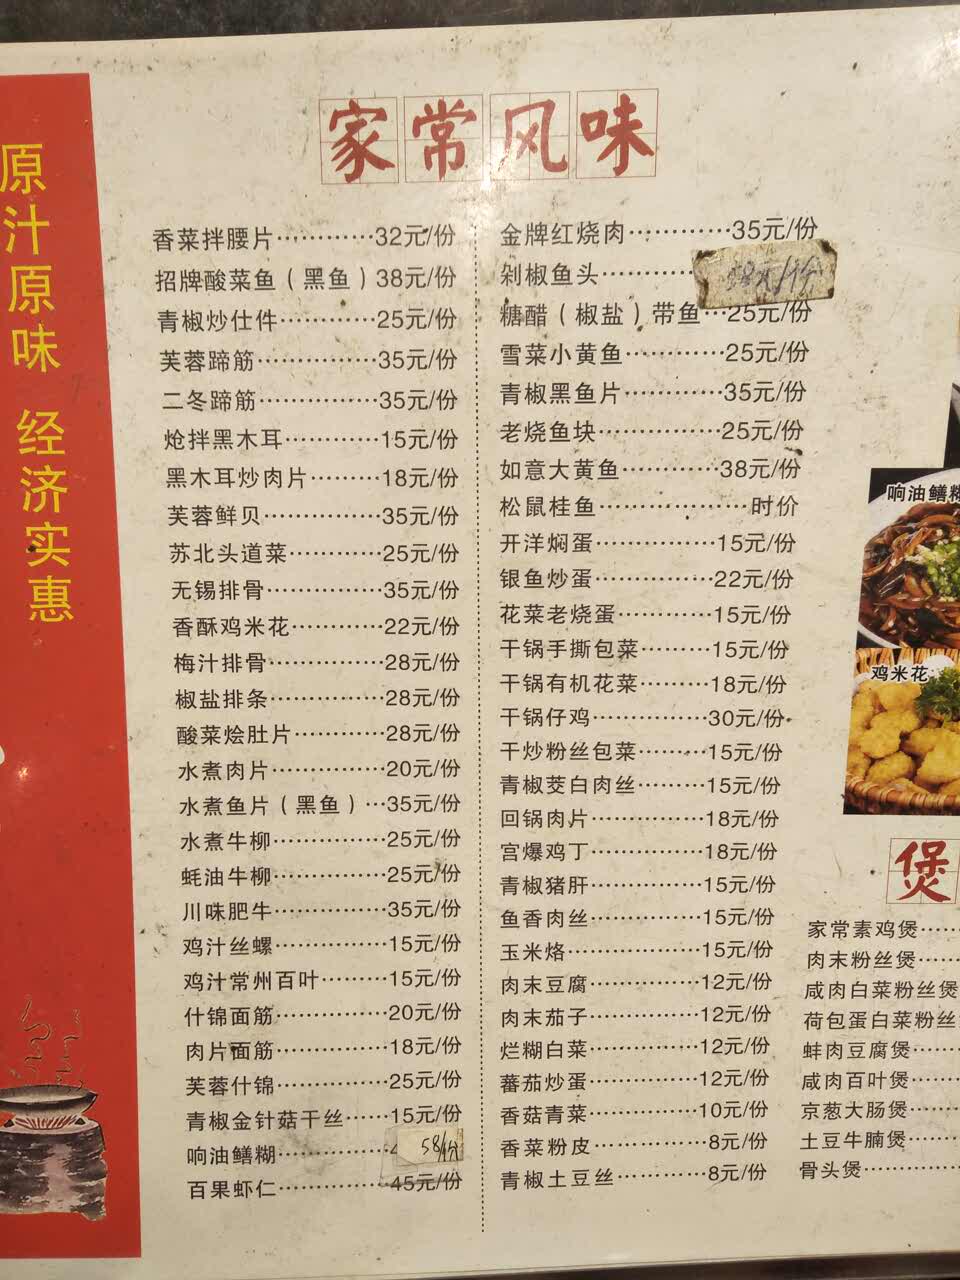 原汁原味 经济实惠
家常风味
香菜拌腰片…………32元/份
招牌酸菜鱼（黑鱼）38元/份
青椒炒仕件…………25元/份
芙蓉蹄筋……………35元/份
二冬蹄筋……………35元/份
炝拌黑木耳…………15元/份
黑木耳炒肉片………18元/份
芙蓉鲜贝……………35元/份
苏北头道菜…………25元/份
无锡排骨……………35元/份
香酥鸡米花…………22元/份
梅汁排骨……………28元/份
椒盐排条……………28元/份
酸菜烩肚片…………28元/份
水煮肉片……………20元/份
水煮鱼片（黑鱼）…35元/份
水煮牛柳……………25元/份
蚝油牛柳……………25元/份
川味肥牛……………35元/份
鸡汁丝螺……………15元/份
鸡汁常州百叶………15元/份
什锦面筋……………20元/份
肉片面筋……………18元/份
芙蓉什锦……………25元/份
青椒金针菇干丝……15元/份
响油鳝糊……………58/份
百果虾仁……………45元/份
金牌红烧肉…………35元/份
剁椒鱼头…………58元/份
糖醋（椒盐）带鱼…25元/份
雪菜小黄鱼…………25元/份
青椒黑鱼片…………35元/份
老烧鱼块……………25元/份
如意大黄鱼…………38元/份
松鼠桂鱼………………时价
开洋焖蛋……………15元/份
银鱼炒蛋……………22元/份
花菜老烧蛋…………15元/份
干锅手撕包菜………15元/份
干锅有机花菜………18元/份
干锅仔鸡……………30元/份
干炒粉丝包菜………15元/份
青椒茭白肉丝………15元/份
回锅肉片……………18元/份
宫爆鸡丁……………18元/份
青椒猪肝……………15元/份
鱼香肉丝……………15元/份
玉米烙………………15元/份
肉末豆腐……………12元/份
肉末茄子……………12元/份
烂糊白菜……………12元/份
蕃茄炒蛋……………12元/份
香菇青菜……………10元/份
香菜粉皮……………8元/份
青椒土豆丝…………8元/份
响油鳝糊
鸡米花
煲
家常素鸡煲……
肉末粉丝煲……
咸肉白菜粉丝煲
荷包蛋白菜粉丝
蚌肉豆腐煲……
咸肉百叶煲……
京葱大肠煲……
土豆牛腩煲……
骨头煲…………